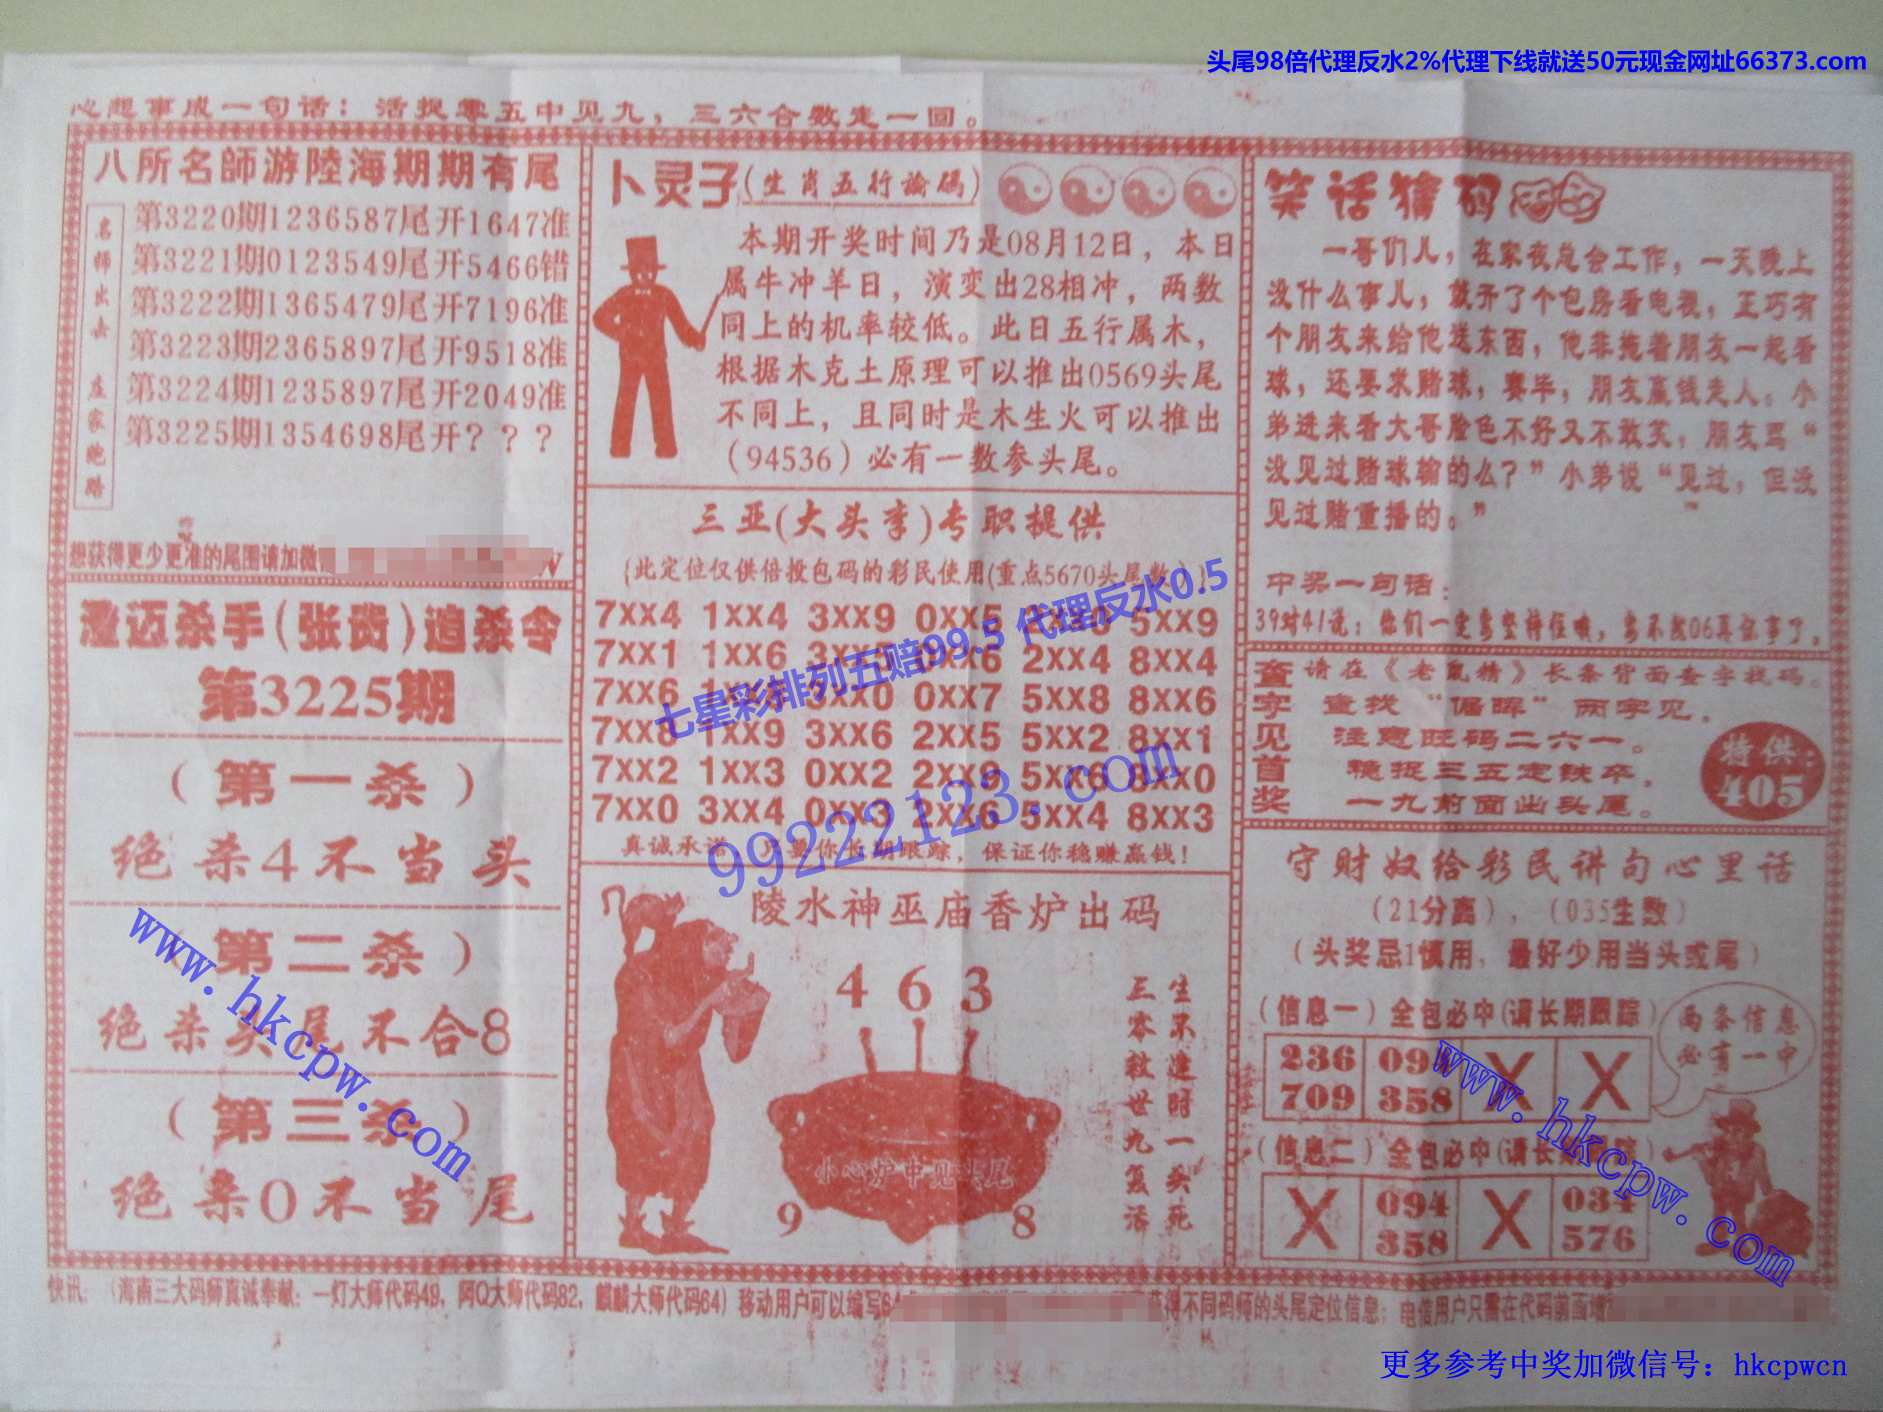 头尾98倍代理反水2%代理下线就送50元现金网址66373.com
心想事成一句话：活捉零五中见九，三六合数走一回。
八所名師游陸海期期有尾
名师出击 庄家跑路
第3220期1236587尾开1647准
第3221期0123549尾开5466错
第3222期1365479尾开7196准
第3223期2365897尾开9518准
第3224期1235897尾开2049准
第3225期1354698尾开？？？
想获得更少更准的尾图请加微
澄迈杀手(张贵)追杀令
第3225期
（第一杀）
绝杀4不当头
（第二杀）
绝杀头尾不合8
（第三杀）
绝杀0不当尾
卜灵子(生肖五行论码)
本期开奖时间乃是08月12日，本日
属牛冲羊日，演变出28相冲，两数
同上的机率较低。此日五行属木，
根据木克土原理可以推出0569头尾
不同上，且同时是木生火可以推出
（94536）必有一数参头尾。
三亚(大头李)专职提供
(此定位仅供倍投包码的彩民使用(重点5670头尾数))
7xx4 1xx4 3xx9 0xx5 5xx9
7xx1 1xx6 0xx6 2xx4 8xx4
7xx6 0xx7 5xx8 8xx6
7xx8 1xx9 3xx6 2xx5 5xx2 8xx1
7xx2 1xx3 0xx2 2xx9 5xx6 8xx0
7xx0 3xx4 0xx3 2xx6 5xx4 8xx3
真诚承诺：只要你长期跟踪，保证你稳赚赢钱！
七星彩排列五赔99.5 代理反水0.5
99222123.com
陵水神巫庙香炉出码
4 6 3
小心炉中见头尾
9 8
生不逢时一头死
三零救世九复活
笑话猜码
一哥们儿，在家夜总会工作，一天晚上
没什么事儿，就开了个包房看电视，正巧有
个朋友来给他送东西，他非拖着朋友一起看
球，还要求赌球，赛毕，朋友赢钱走人。小
弟进来看大哥脸色不好又不敢笑，朋友骂“
没见过赌球输的么？”小弟说“见过，但没
见过赌重播的。”
中奖一句话：
39对41说：你们一定要坚持住哦，要不然06真包事了。
查字见首奖
请在《老鼠精》长条背面查字找码。
查找“倔晖”两字见。
注意旺码二六一。
稳捉三五定铁卒，
一九前面出头尾。
特供：
405
守财奴给彩民讲句心里话
（21分离），（035生数）
（头奖忌1慎用，最好少用当头或尾）
（信息一）全包必中(请长期跟踪)
236 X X
709 358
两条信息
必有一中
（信息二）全包必中(请长期跟踪)
X 094 X 034
358 576
www.hkcpw.com
www.hkcpw.com
快讯：（海南三大码师真诚奉献：一灯大师代码49，阿Q大师代码82，麒麟大师代码64）移动用户可以编写 获得不同码师的头尾定位信息；电信用户只需在代码前面增
更多参考中奖加微信号：hkcpwcn